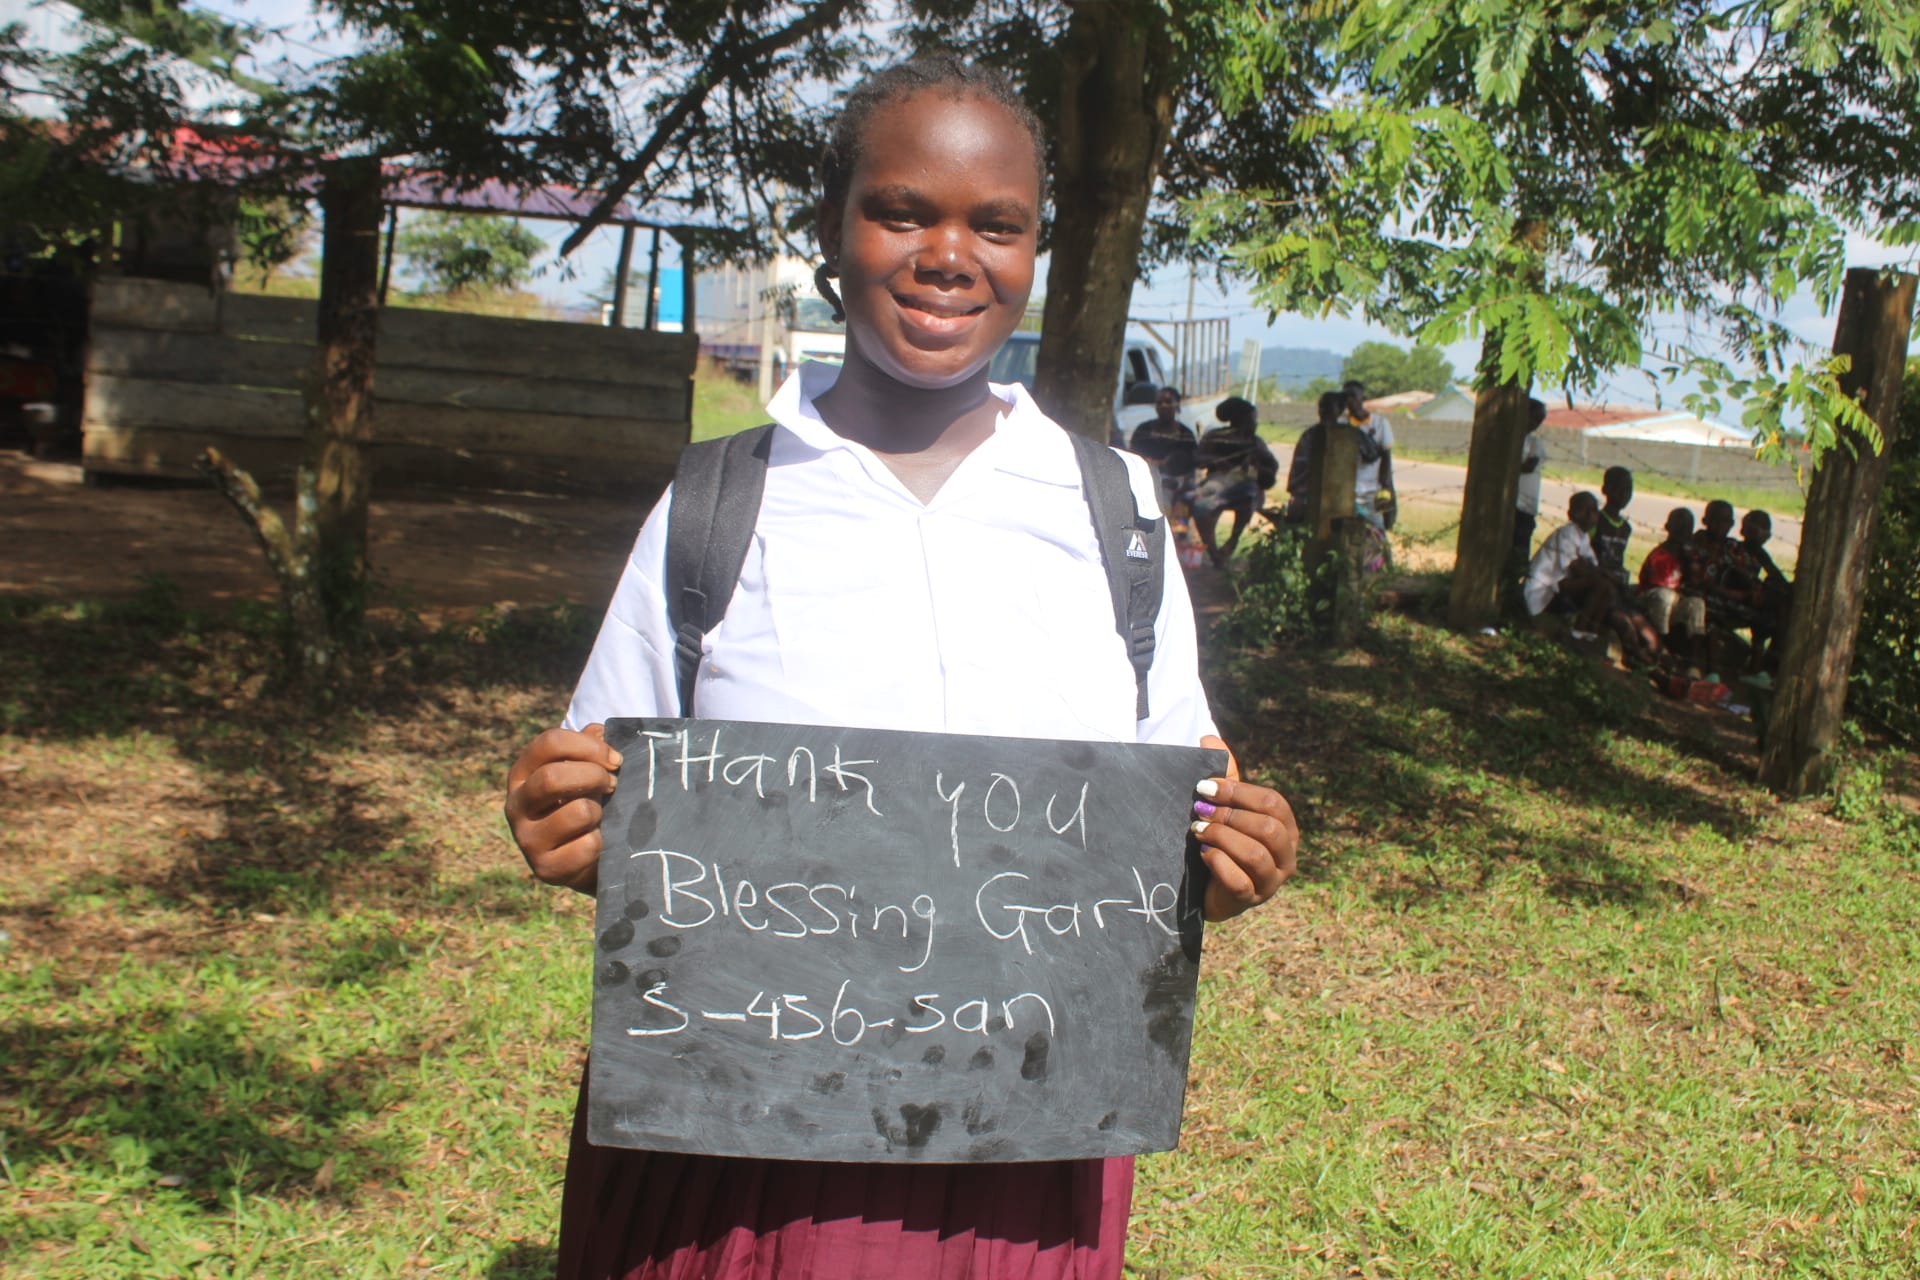 THank you
Blessing Garteh
S-456-san
EVEREST